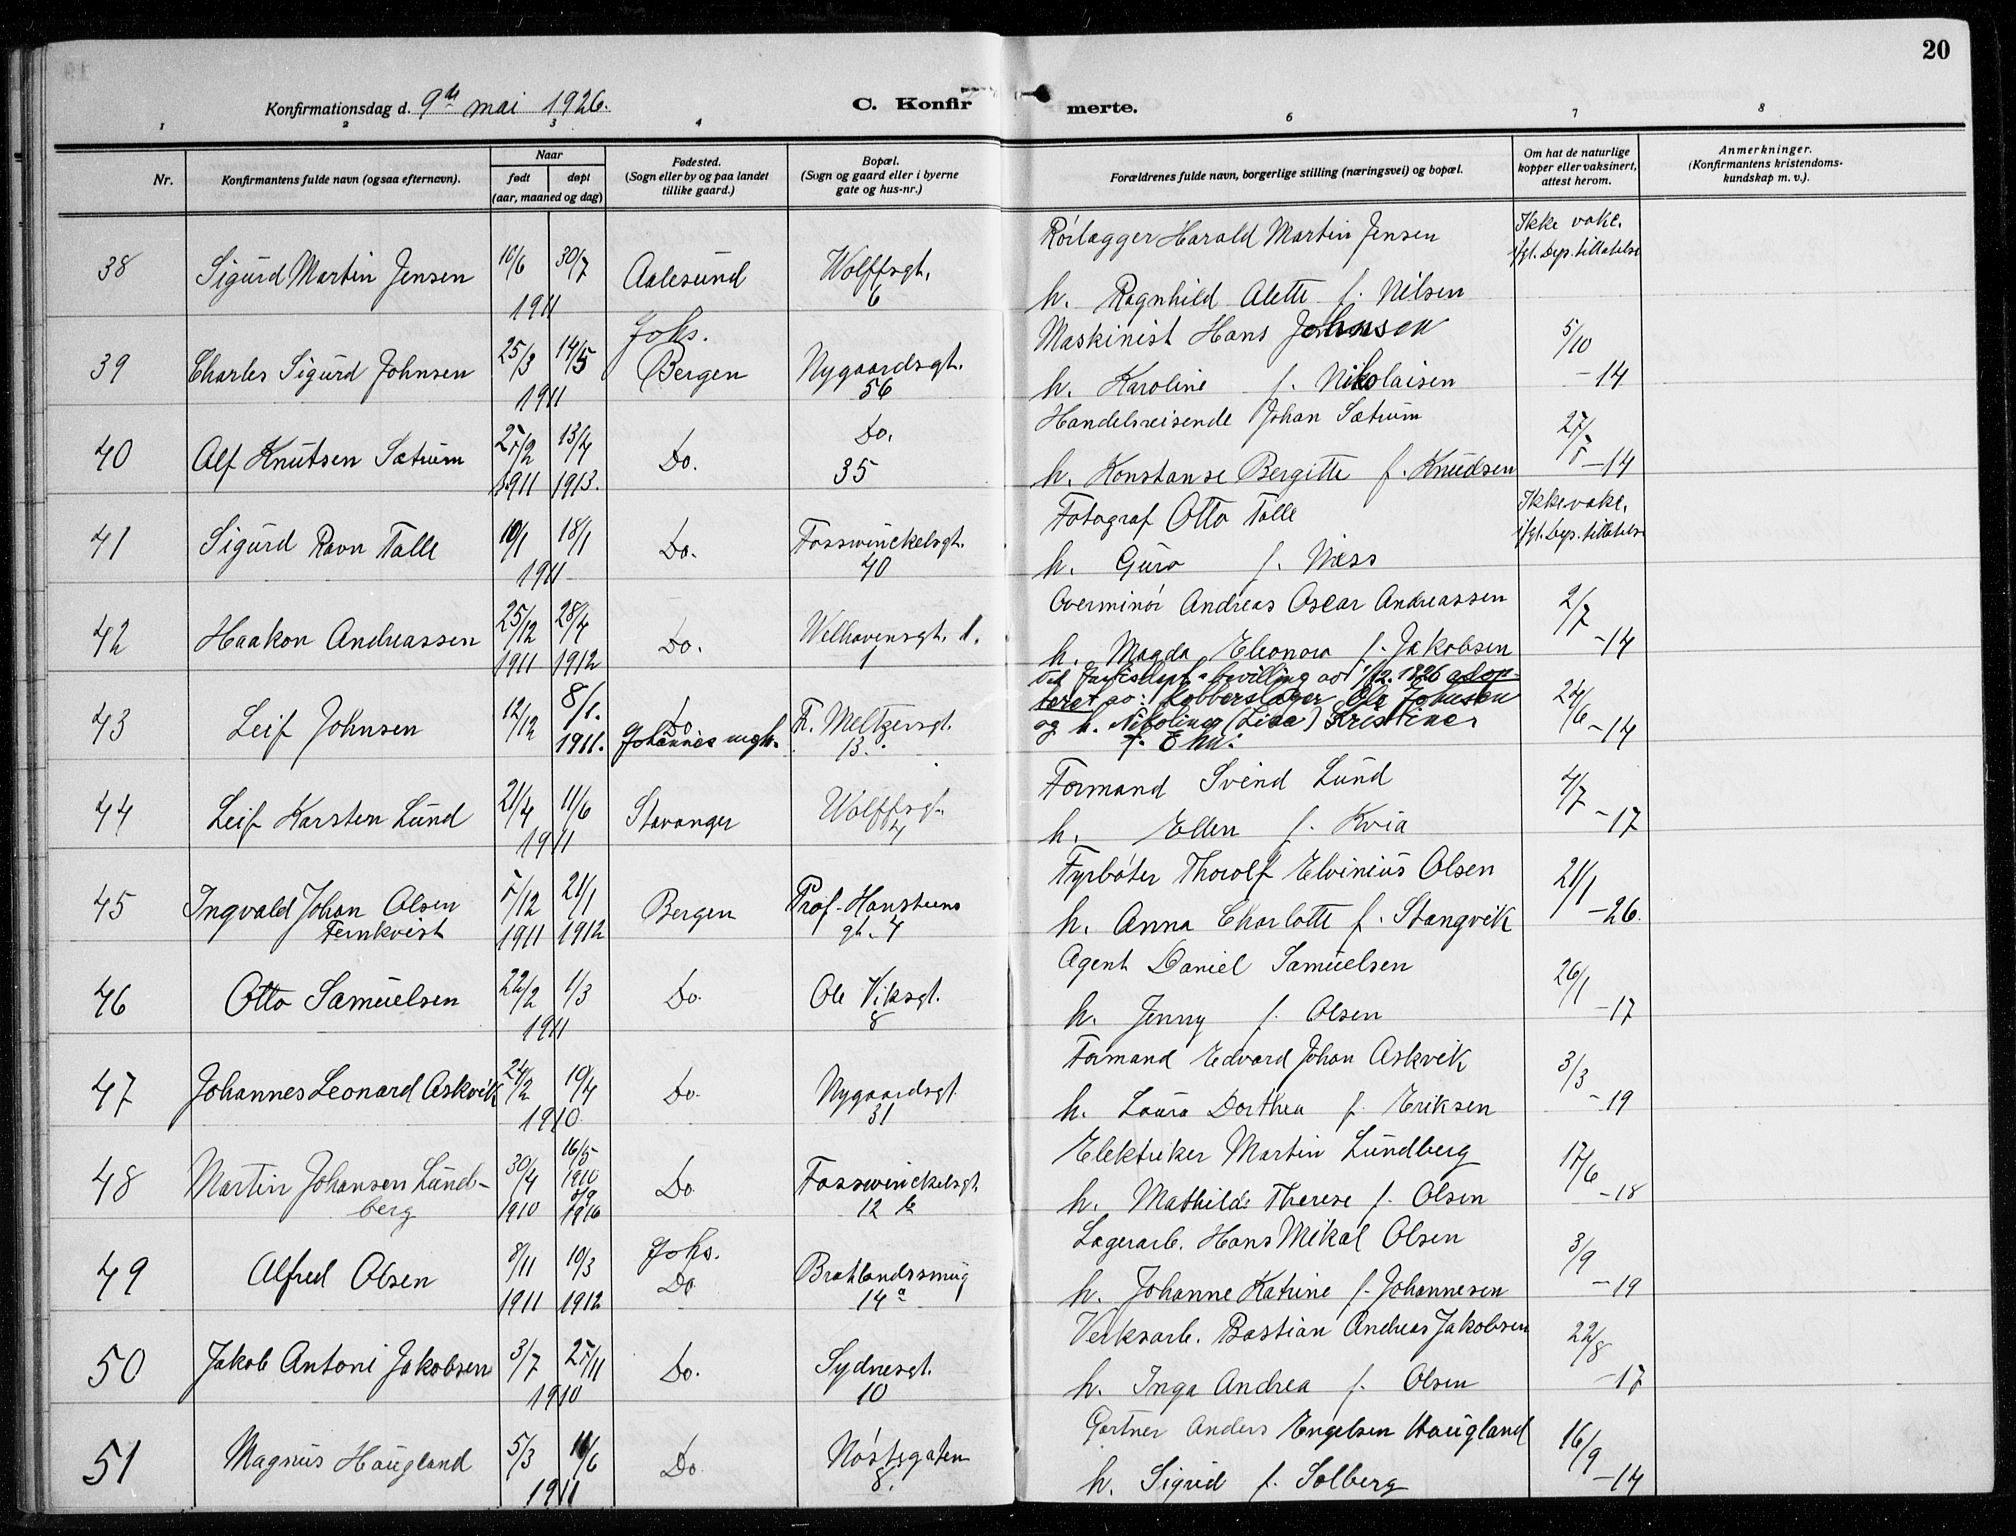 20
Konfirmationsdag d. 9de mai 1926.
C. Konfir merte.
1 2 3 4 6 7 8
Nr.
Konfirmantens fulde navn (ogsaa efternavn).
Naar
født døpt
(aar, maaned og dag)
Fødested.
(Sogn eller by og paa landet
tillike gaard.)
Bopæl.
(Sogn og gaard eller i byerne
gate og hus-nr.)
Forældrenes fulde navn, borgerlige stilling (næringsvei) og bopæl.
Om hat de naturlige
kopper eller vaksinert,
attest herom.
Anmerkninger.
(Konfirmantens kristendoms-
kundskap m. v.).
38 Sigurd Martin Jensen 10/6 30/7 1911 Aalesund Wolffsgt. 6
Rörlægger Harald Martin Jensen
h. Ragnhild Alette f. Nilsen
Ikke vakc.
ifgl. Dep. tillatelse
39 Charles Sigurd Johnsen 25/3 14/5 1911 Johs. Bergen Nygaardsgt. 56
Maskinist Hans Johnsen
h. Karoline f. Nikolaisen
5/10 -14
40 Alf Knutsen Sætrum 27/2 1911 13/4 1913. Do. Do. 35
Handelsreisende Johan Sætrum
h. Konstanse Bergitte f. Knudsen
-14
41 Sigurd Ravn Talle 10/1 18/1 1911 Do. Fosswinckelsgt. 40
Fotograf Otto Talle
h. Guro f. Næss
Ikke vakc.
ifgl. Dep. tillatelse
42 Haakon Andreassen 25/12 1911 28/4 1912 Do. Welhavensgt. 1
Overminör Andreas Oscar Andreassen
h. Magda Eleonora f. Jakobsen
2/7 -14
43 Leif Johnsen 12/12 8/1. 1911. Do Johannes megh. F. Meltzersgt. 13.
Ved Justisdept.s bevilling av 1/12. 1926 adop-
teret av: Kobberslager Ole Johnsen
og h. Nikoline (Lina) Kristine
24/6 -14
44 Leif Karsten Lund 21/4 11/6 1911 Stavanger Wolffsgt. 4
Formand Svend Lund
h. Ellen f. Kvia
4/7 -17
45 Ingvald Johan Olsen
Fernkvist 5/12 1911 21/1 1912 Bergen Prof. Hansteens gt. 4
Fyrböter Thorolf Elvinius Olsen
h. Anna Charlotte f. Stangvik
21/1 -26.
46 Otto Samuelsen 22/2 1/3 1911 Do. Ole Viksgt. 8
Agent Daniel Samuelsen
h. Jenny f. Olsen
26/1 -17
47 Johannes Leonard Askvik 24/2 10/4 1910 Do. Nygaardsgt. 31
Formand Edvard Johan Askvik
h. Laura Dorthea f. Eriksen
3/3 -19
48 Martin Johansen Lund-
berg 30/4 1910 16/5 1910 Do Fosswinckelsgt. 12 b
Elektriker Martin Lundberg
h. Mathilde Therese f. Olsen
17/6 -18
49 Alfred Olsen 8/11 1911 10/3 1912 Johs. Do Bratlandssmug 14a
Lagerarb. Hans Mikal Olsen
h. Johanne Katrine f. Johannesen
3/9 -19
50 Jakob Antoni Jakobsen 3/7 27/11 1910 Do. Sydnesgt. 10
Verksarb. Bastian Andreas Jakobsen
h. Inga Andrea f. Olsen
22/8 -17
51 Magnus Haugland 5/3 11/6 1911 Do Nöstegaten 8.
Gartner Anders Engelsen Haugland
h. Sigrid f. Solberg
16/9 -14